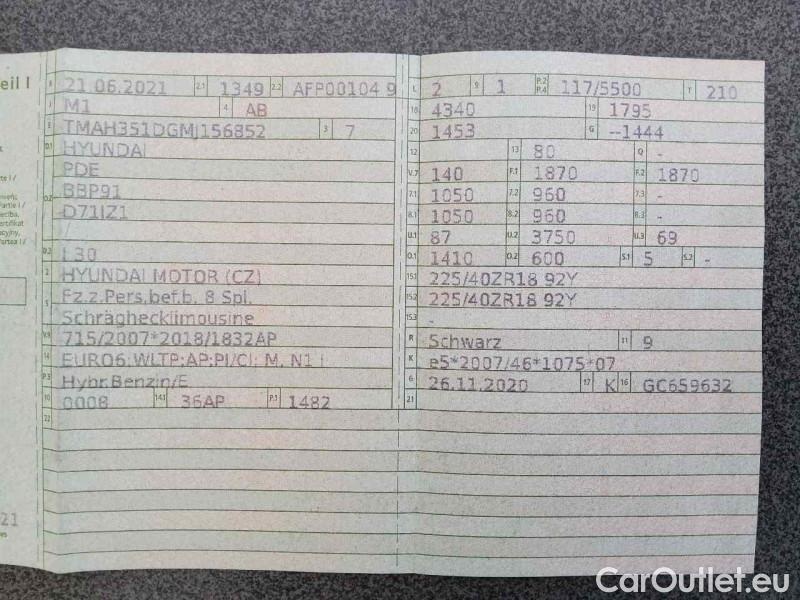 eil I
B 21.06.2021 2.1 1349 2.2 AFP00104 9
J M1 4 AB
E TMAH351DGMJ156852 3 7
D.1 HYUNDAI
PDE
D.2 BBP91
D71IZ1
/
D.3 I 30
2 HYUNDAI MOTOR (CZ)
5 Fz.z.Pers.bef.b. 8 Spl.
Schräghecklimousine
V.9 715/2007*2018/1832AP
14 EURO6;WLTP;AP;PI/CI; M, N1 I
P.3 Hybr.Benzin/E
10 0008 14.1 36AP P.1 1482
22
L 2 9 1 P.2 P.4 117/5500 T 210
18 4340 19 1795
20 1453 G --1444
12 13 80 Q -
V.7 140 F.1 1870 F.2 1870
7.1 1050 7.2 960 7.3 -
8.1 1050 8.2 960 8.3 -
U.1 87 U.2 3750 U.3 69
O.1 1410 O.2 600 S.1 5 S.2 -
15.1 225/40ZR18 92Y
15.2 225/40ZR18 92Y
15.3 -
R Schwarz 11 9
K e5*2007/46*1075*07
6 26.11.2020 17 K 16 GC659632
21
21
CarOutlet.eu